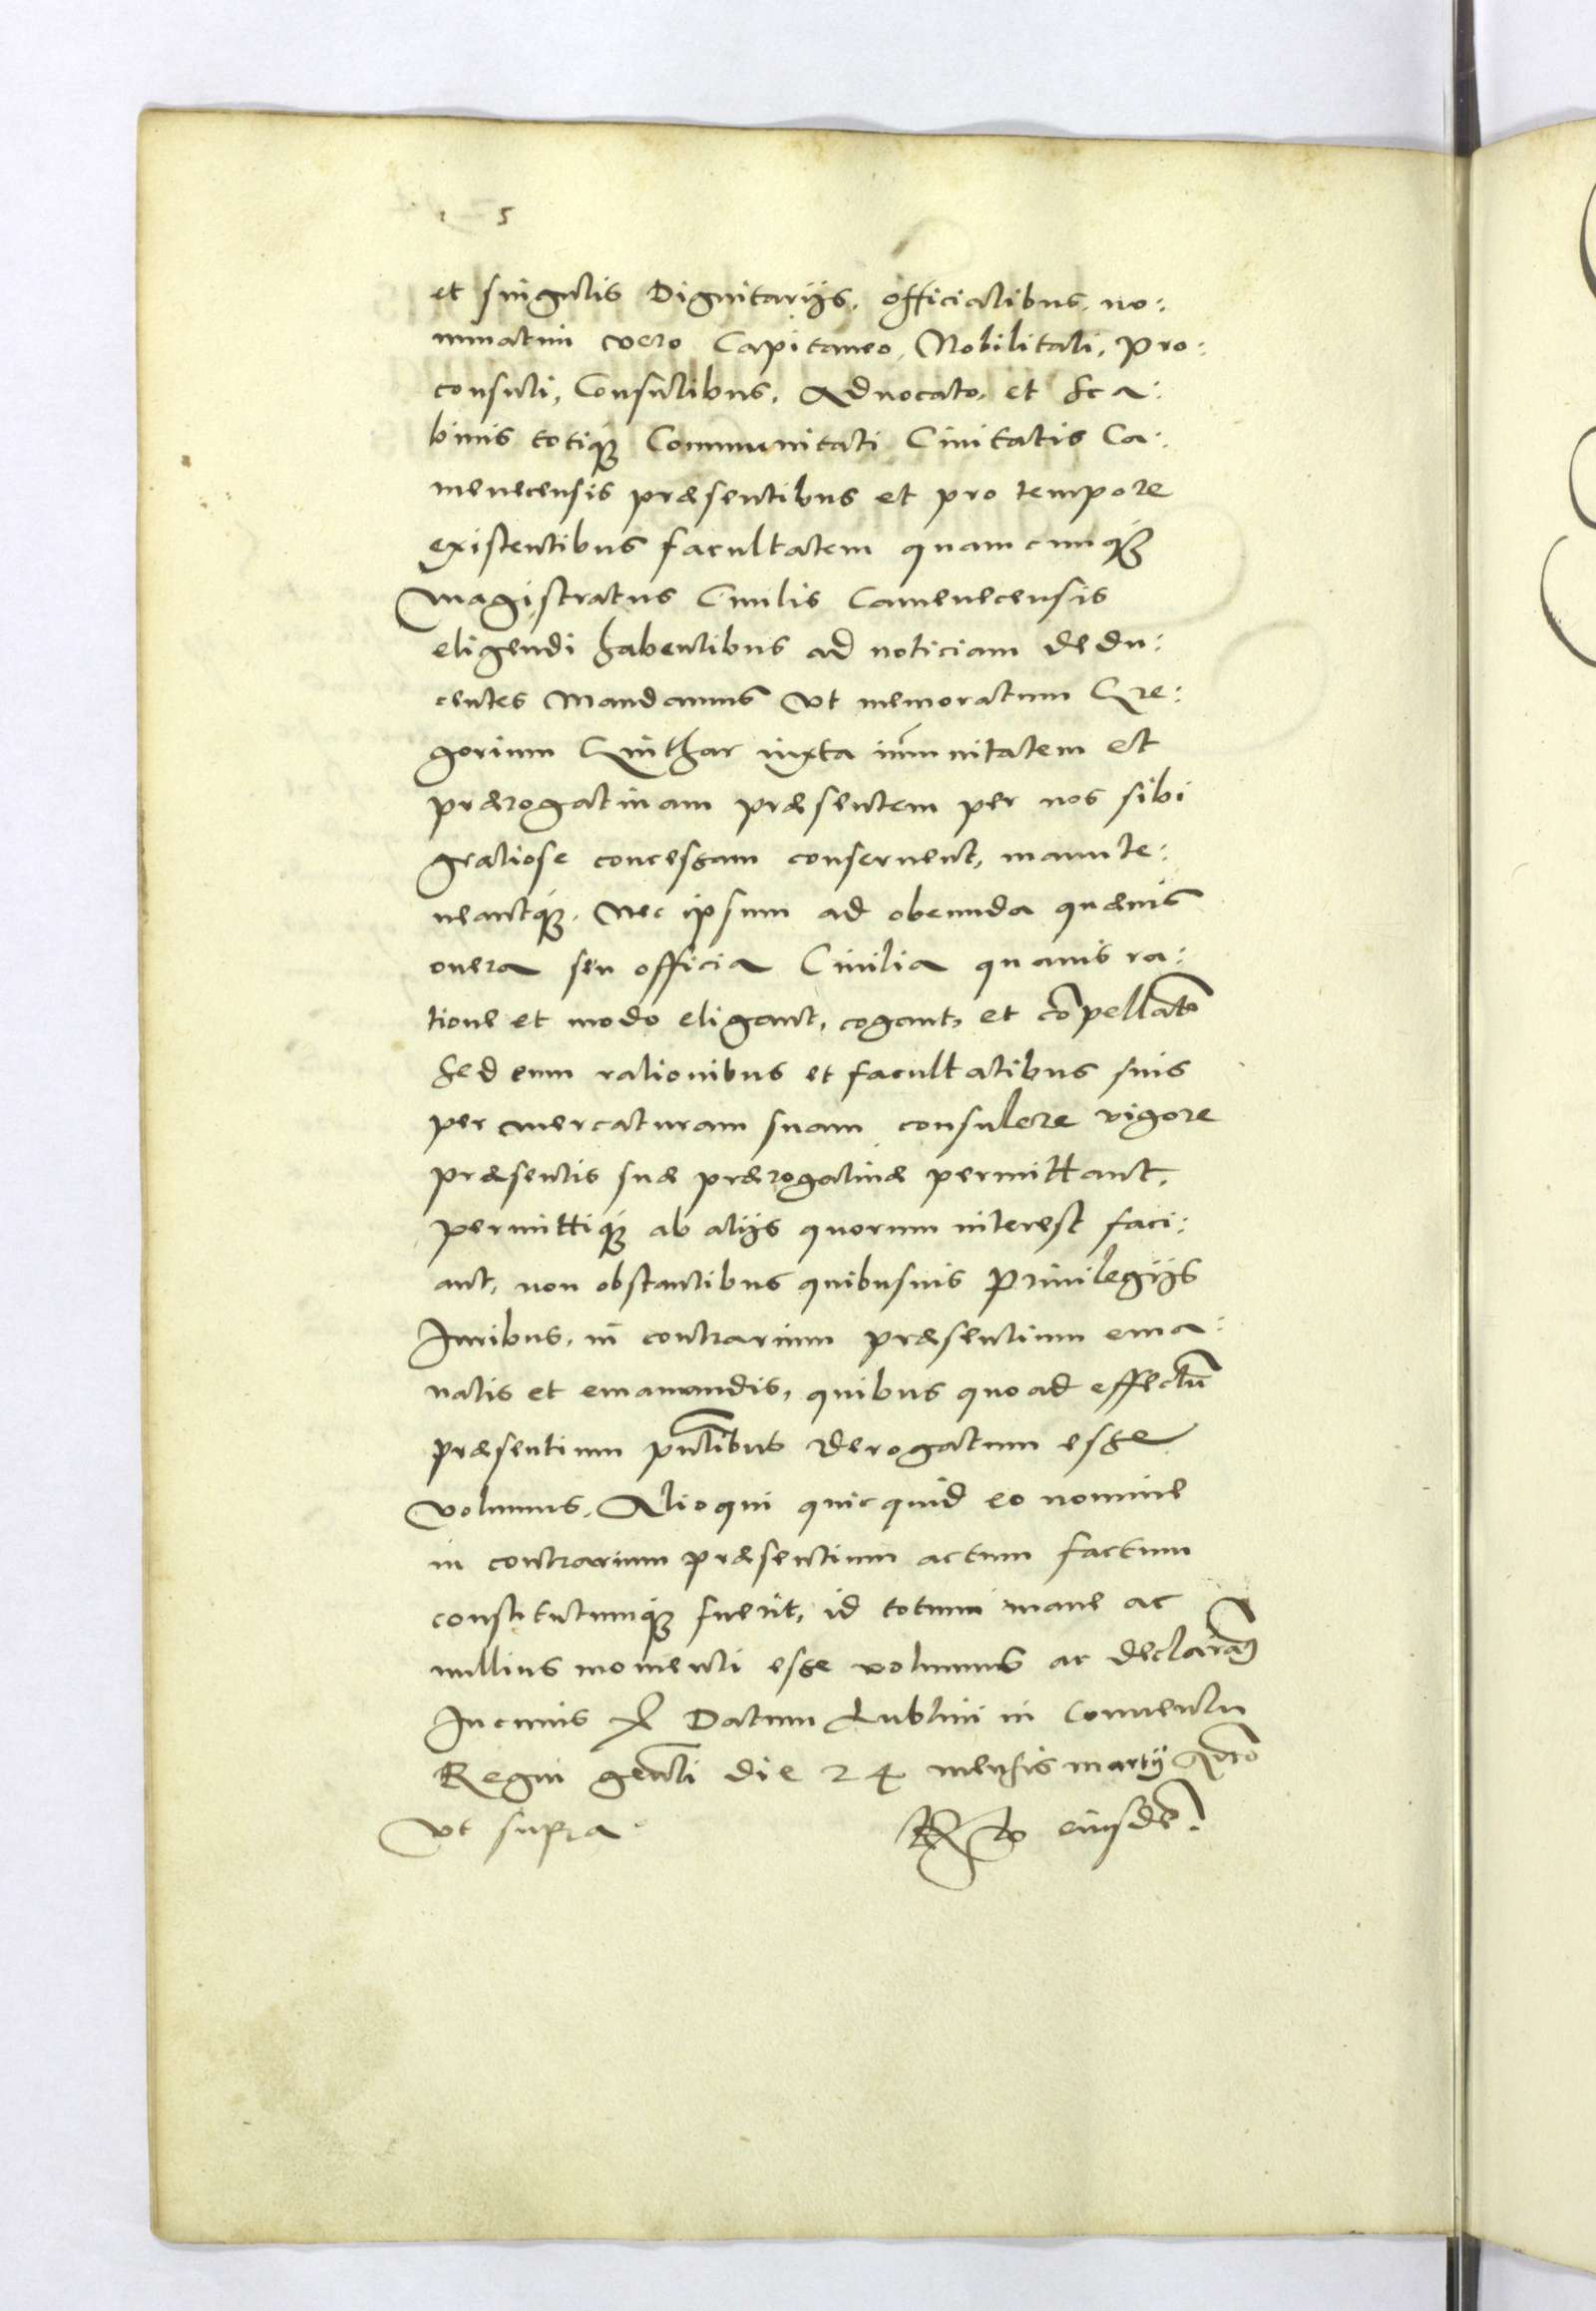 et singulis Dignitarijs, officialibus, no:
minatim vero Capitaneo, Nobilitati, Pro:
consuli, Consulibus, Aduocato, et Sca:
binis totiq̃ Communitati Ciuitatis Ca:
menecensis præsentibus et pro tempore
existentibus facultatem quamcunq̃
magistratus Ciuilis Camenecensis
eligendi habentibus ad noticiam dedu:
centes Mandamus vt memoratum Gre:
gorium iuxta im̃unitatem et
prærogatiuam præsentem per nos sibi
gratiose concessam conseruent, manute:
neantq̃. Nec ipsum ad obeunda quæuis
onera seu officia Ciuilia quauis ra:
tione et modo eligant, cogant, et co̅pellant
Sed eum rationibus et facultatibus suis
per mercaturam suam consulere vigore
præsentis suæ prærogatiuæ permittant,
permittiq̃ ab alijs quorum interest faci:
ant, non obstantibus quibusuis Priuilegijs
Iuribus, in contrarium præsentium ema:
natis et emanandis, quibus quo ad effectu̅
præsentium pn̅tibus derogatum esse
volumus. Alioqui quicquid eo nomine
in contrarium præsentium actum factum
constitutumq̃ fuerit, id totum inane ac
nullius momenti esse volumus ac declaram9
In cuius Datum Lublini in Conuentu
Regni gen̅li die 24 mensis martij
vt supra. R̃to eiusde̅.